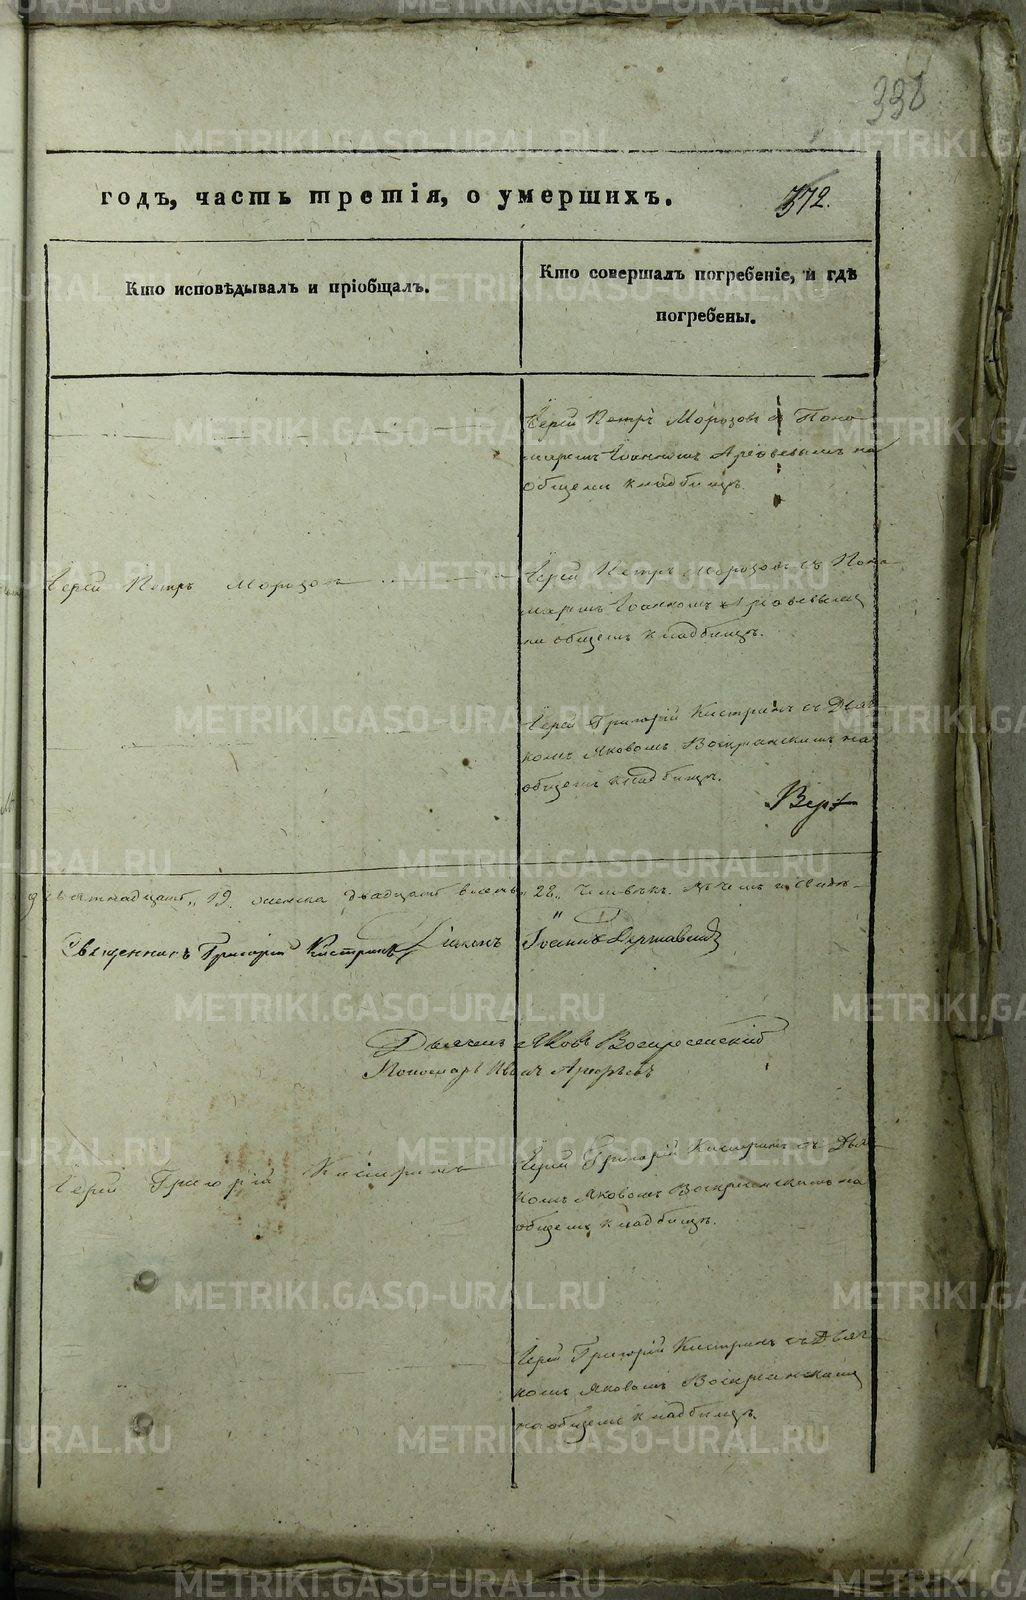 338
годъ, часть третія, о умершихъ.
372.
Кто исповѣдывалъ и пріобщалъ.
Кто совершалъ погребеніе, и гдѣ
погребены.
Іерей Петръ Морозовъ съ Поно
маремъ Іоанномъ Арефьевымъ на
общемъ кладбищѣ.
Іерей Петръ Морозовъ
Іерей Петръ Морозовъ съ Поно
маремъ Іоанномъ Арефьевымъ
на общемъ кладбищѣ.
Іерей Григорій Кистринъ съ Дьяч
комъ Яковомъ Воскресенскимъ на
общемъ кладбищѣ.
19. женска двадцать восемь 28. человѣкъ. въ чемъ и свидѣ-
Священникъ Григорій Кистринъ Діаконъ Іоаннъ Державинъ
Дьячекъ Яковъ Воскресенскій
Пономарь Иванъ Арефьевъ
Іерей Григорій Кистринъ
Іерей Григорій Кистринъ съ Дьяч
комъ Яковомъ Воскресенскимъ на
общемъ кладбищѣ.
Іерей Григорій Кистринъ съ Дьяч
комъ Яковомъ Воскресенскимъ
на общемъ кладбищѣ.
METRIKI.GASO-URAL.RU